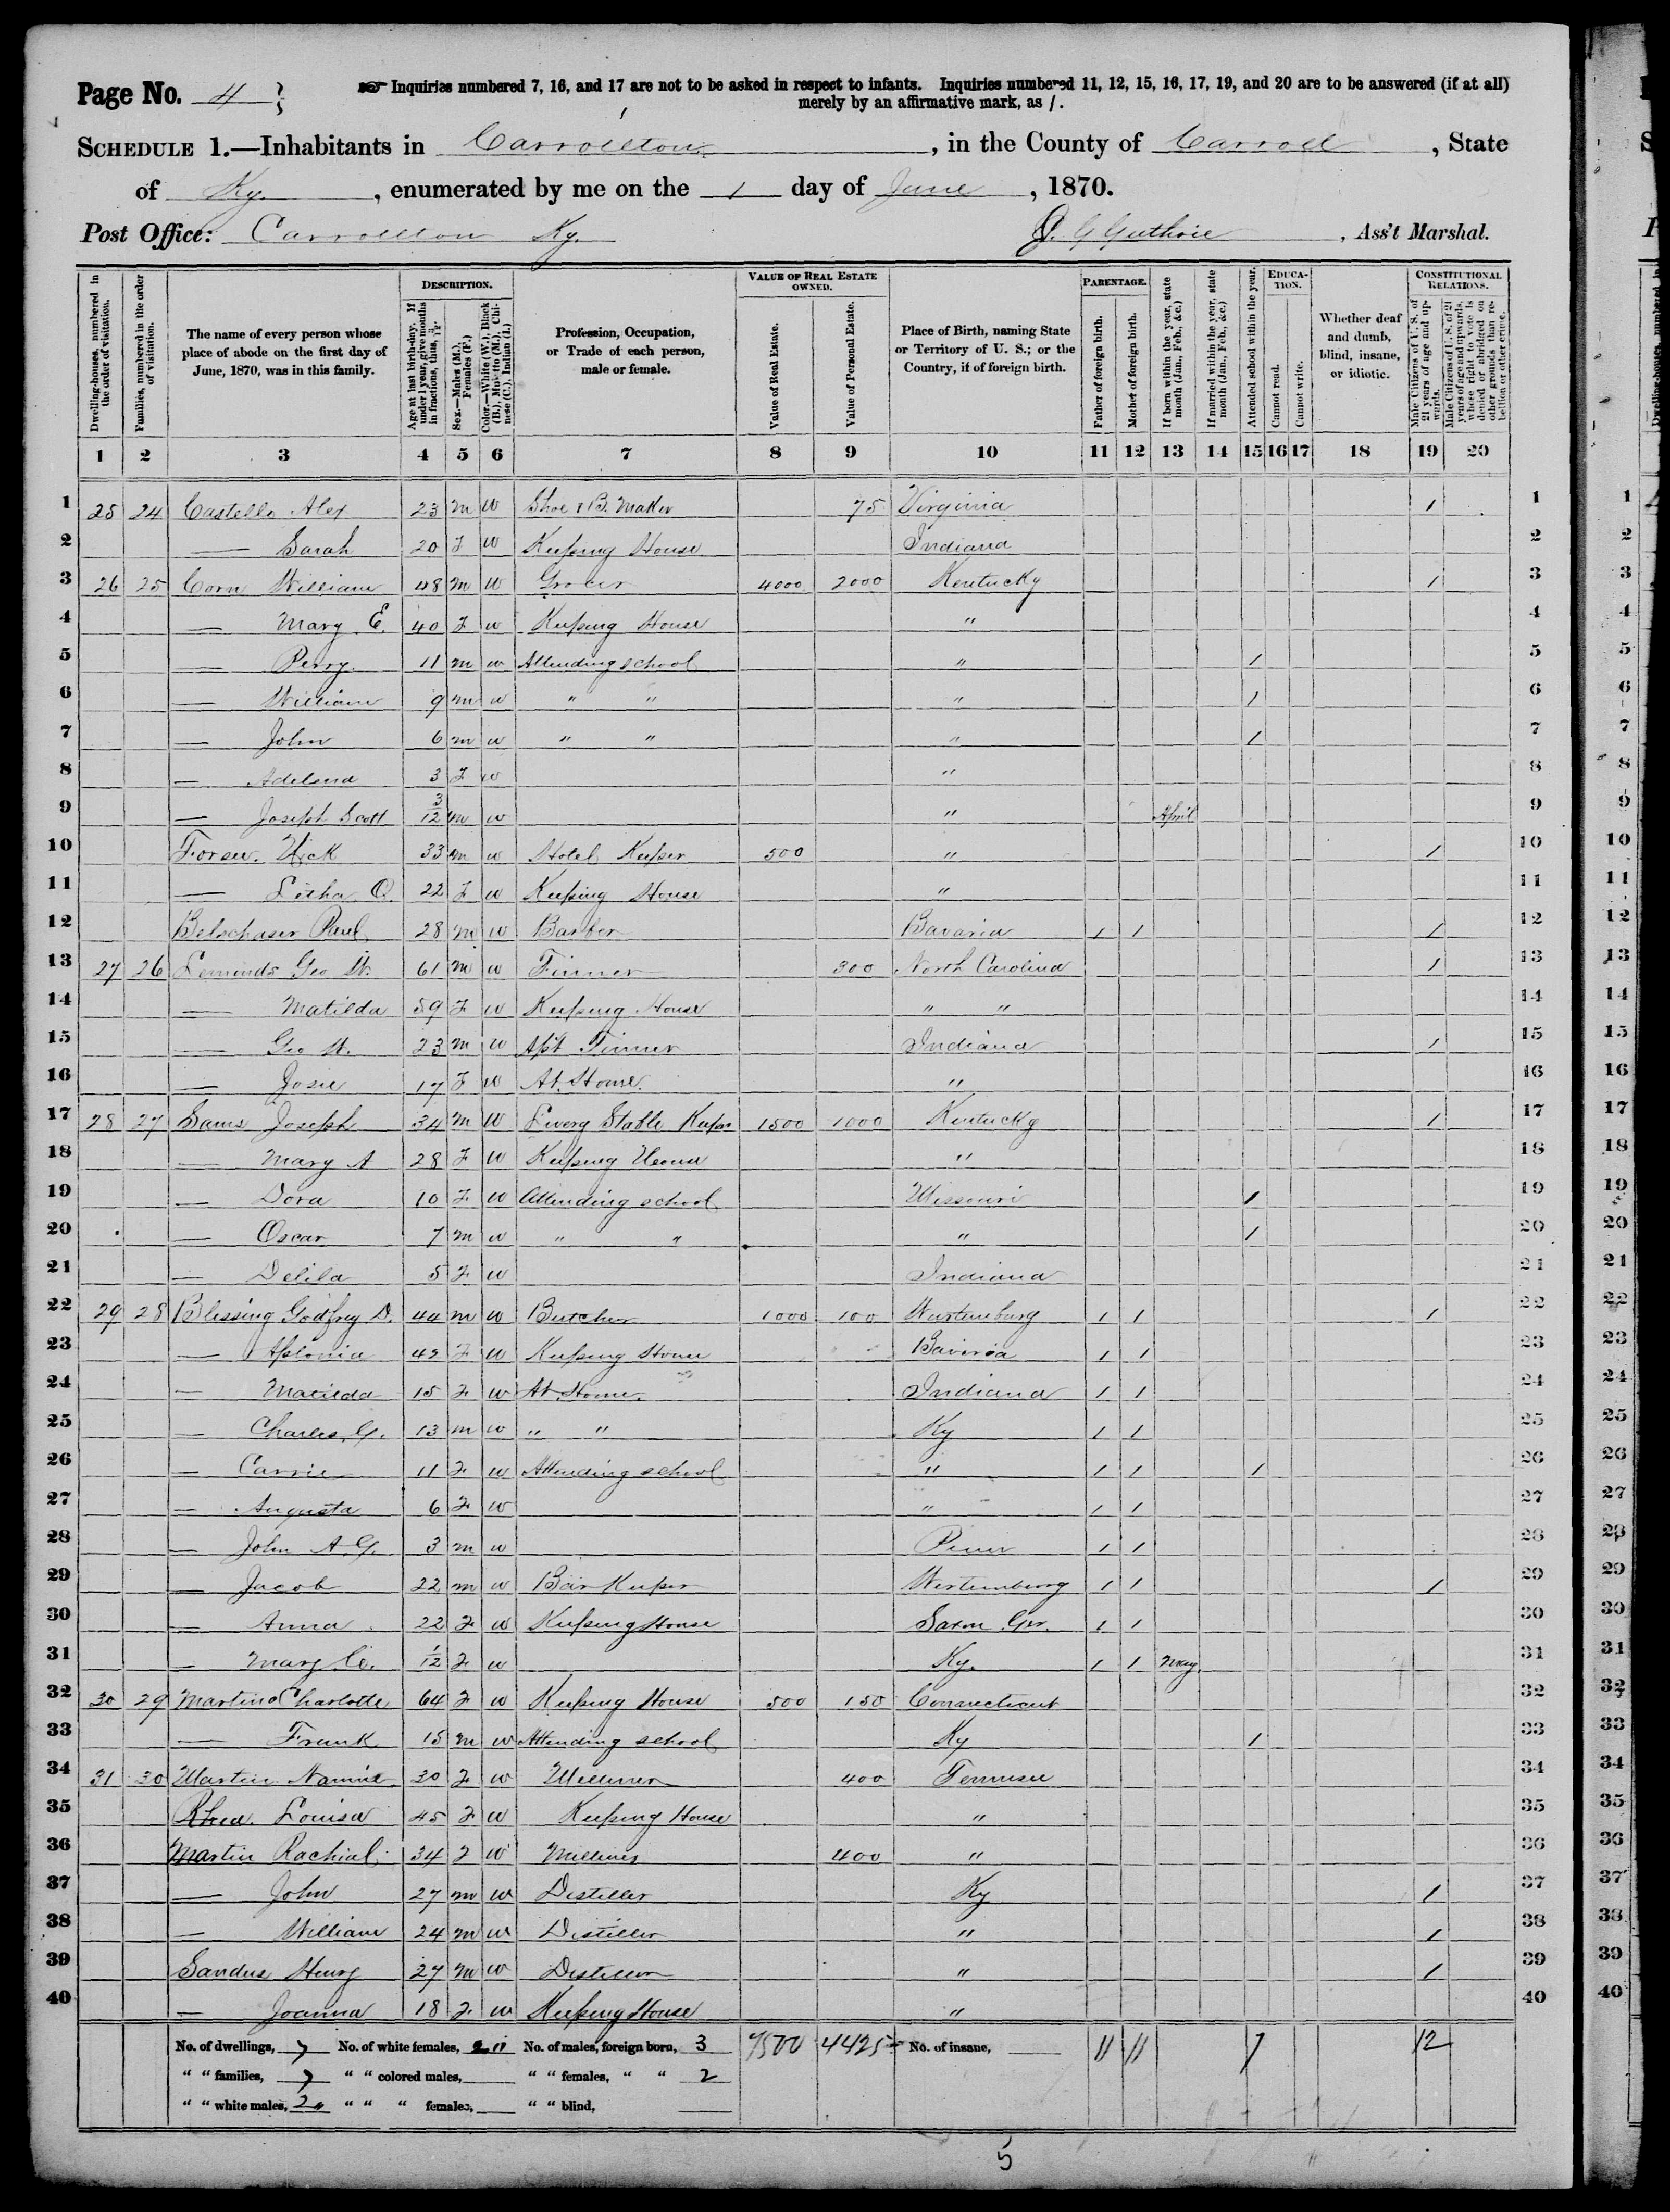 Page No. 4
Inquiries numbered 7, 16, and 17 are not to be asked in respect to infants. Inquiries numbered 11, 12, 15, 16, 17, 19, and 20 are to be answered (if at all)
merely by an affirmative mark, as /.
SCHEDULE 1.—Inhabitants in Carrollton, in the County of Carroll, State
of Ky., enumerated by me on the 1 day of June, 1870.
Post Office: Carrollton Ky. J. G Guthrie, Ass't Marshal.
Dwelling-houses, numbered in the order of visitation.
Families, numbered in the order of visitation.
The name of every person whose place of abode on the first day of June, 1870, was in this family.
DESCRIPTION.
Age at last birth-day. If under 1 year, give months in fractions, thus, 3/12.
Sex.—Males (M.), Females (F.)
Color.—White (W.), Black (B.), Mulatto (M.), Chinese (C.), Indian (I.)
Profession, Occupation, or Trade of each person, male or female.
VALUE OF REAL ESTATE OWNED.
Value of Real Estate.
Value of Personal Estate.
Place of Birth, naming State or Territory of U. S.; or the Country, if of foreign birth.
PARENTAGE.
Father of foreign birth.
Mother of foreign birth.
If born within the year, state month (Jan., Feb., &c.)
If married within the year, state month (Jan., Feb., &c.)
Attended school within the year.
EDUCATION.
Cannot read.
Cannot write.
Whether deaf and dumb, blind, insane, or idiotic.
CONSTITUTIONAL RELATIONS.
Male Citizens of U. S. of 21 years of age and upwards.
Male Citizens of U. S. of 21 years of age and upwards, whose right to vote is denied or abridged on other grounds than rebellion or other crime.
1 2 3 4 5 6 7 8 9 10 11 12 13 14 15 16 17 18 19 20
1 25 24 Castello Alex 23 m W Shoe & B. Maker 75 Virginia / 1
2 — Sarah 20 F W Keeping House Indiana 2
3 26 25 Corn William 48 m W Grocer 4000 2000 Kentucky / 3
4 — Mary E. 40 F w Keeping House " 4
5 — Perry 11 m w Attending school " / 5
6 — William 9 m w " " " / 6
7 — John 6 m w " " " / 7
8 — 3 F w " 8
9 — Joseph Scott 3/12 m w " April 9
10 33 m w Hotel Keeper 500 " / 10
11 — 22 F w Keeping House " 11
12 Paul 28 m w Barber Bavaria / / / 12
13 27 26 Geo W. 61 m w Tinner 300 North Carolina / 13
14 — Matilda 59 F w Keeping House " " 14
15 — Geo W. 23 m w Apt Tinner Indiana / 15
16 — Josie 17 F w At Home. " 16
17 28 27 Sams Joseph 34 m W Livery Stable Keeper 1500 1000 Kentucky / 17
18 — Mary A 28 F W Keeping House " 18
19 — Dora 10 F w Attending school Missouri / 19
20 — Oscar 7 m w " " " / 20
21 — Delila 5 F w Indiana 21
22 29 28 Blessing Godfrey D. 44 m w Butcher 1000 100 Wurtemburg / / / 22
23 — Aplonia 42 F W Keeping House Baviria / / 23
24 — Matilda 15 F w At Home. Indiana / / 24
25 — Charles G. 13 m w " " Ky / / 25
26 — Carrie 11 F w Attending school " / / / 26
27 — Augusta 6 F w " / / 27
28 — John A. G. 3 m w / / 28
29 — Jacob 22 m w Bar Keeper Wertemburg / / / 29
30 — Anna 22 F w Keeping House Saxon Ger. / / 30
31 — Mary C. 1/12 F w Ky. / / May 31
32 30 29 Martin Charlotte 64 F w Keeping House 500 150 Connecticut 32
33 — Frank 15 m w Attending school Ky / 33
34 31 30 Martin 30 F w Milliner 400 Tennesee 34
35 Rhea Louisa 45 F w Keeping House " 35
36 Martin Rachial 34 F w Milliner 400 " 36
37 — John 27 m w Distiller Ky / 37
38 — William 24 m w Distiller " / 38
39 Sandus Henry 27 m w Distiller " / 39
40 — Joanna 18 F w Keeping House " 40
No. of dwellings, 7 No. of white females, No. of males, foreign born, 3 7500 4425 No. of insane, 11 11 7 12
" " families, 7 " " colored males, " " females, " " 2
" " white males, 20 " " " females, " " blind,
5